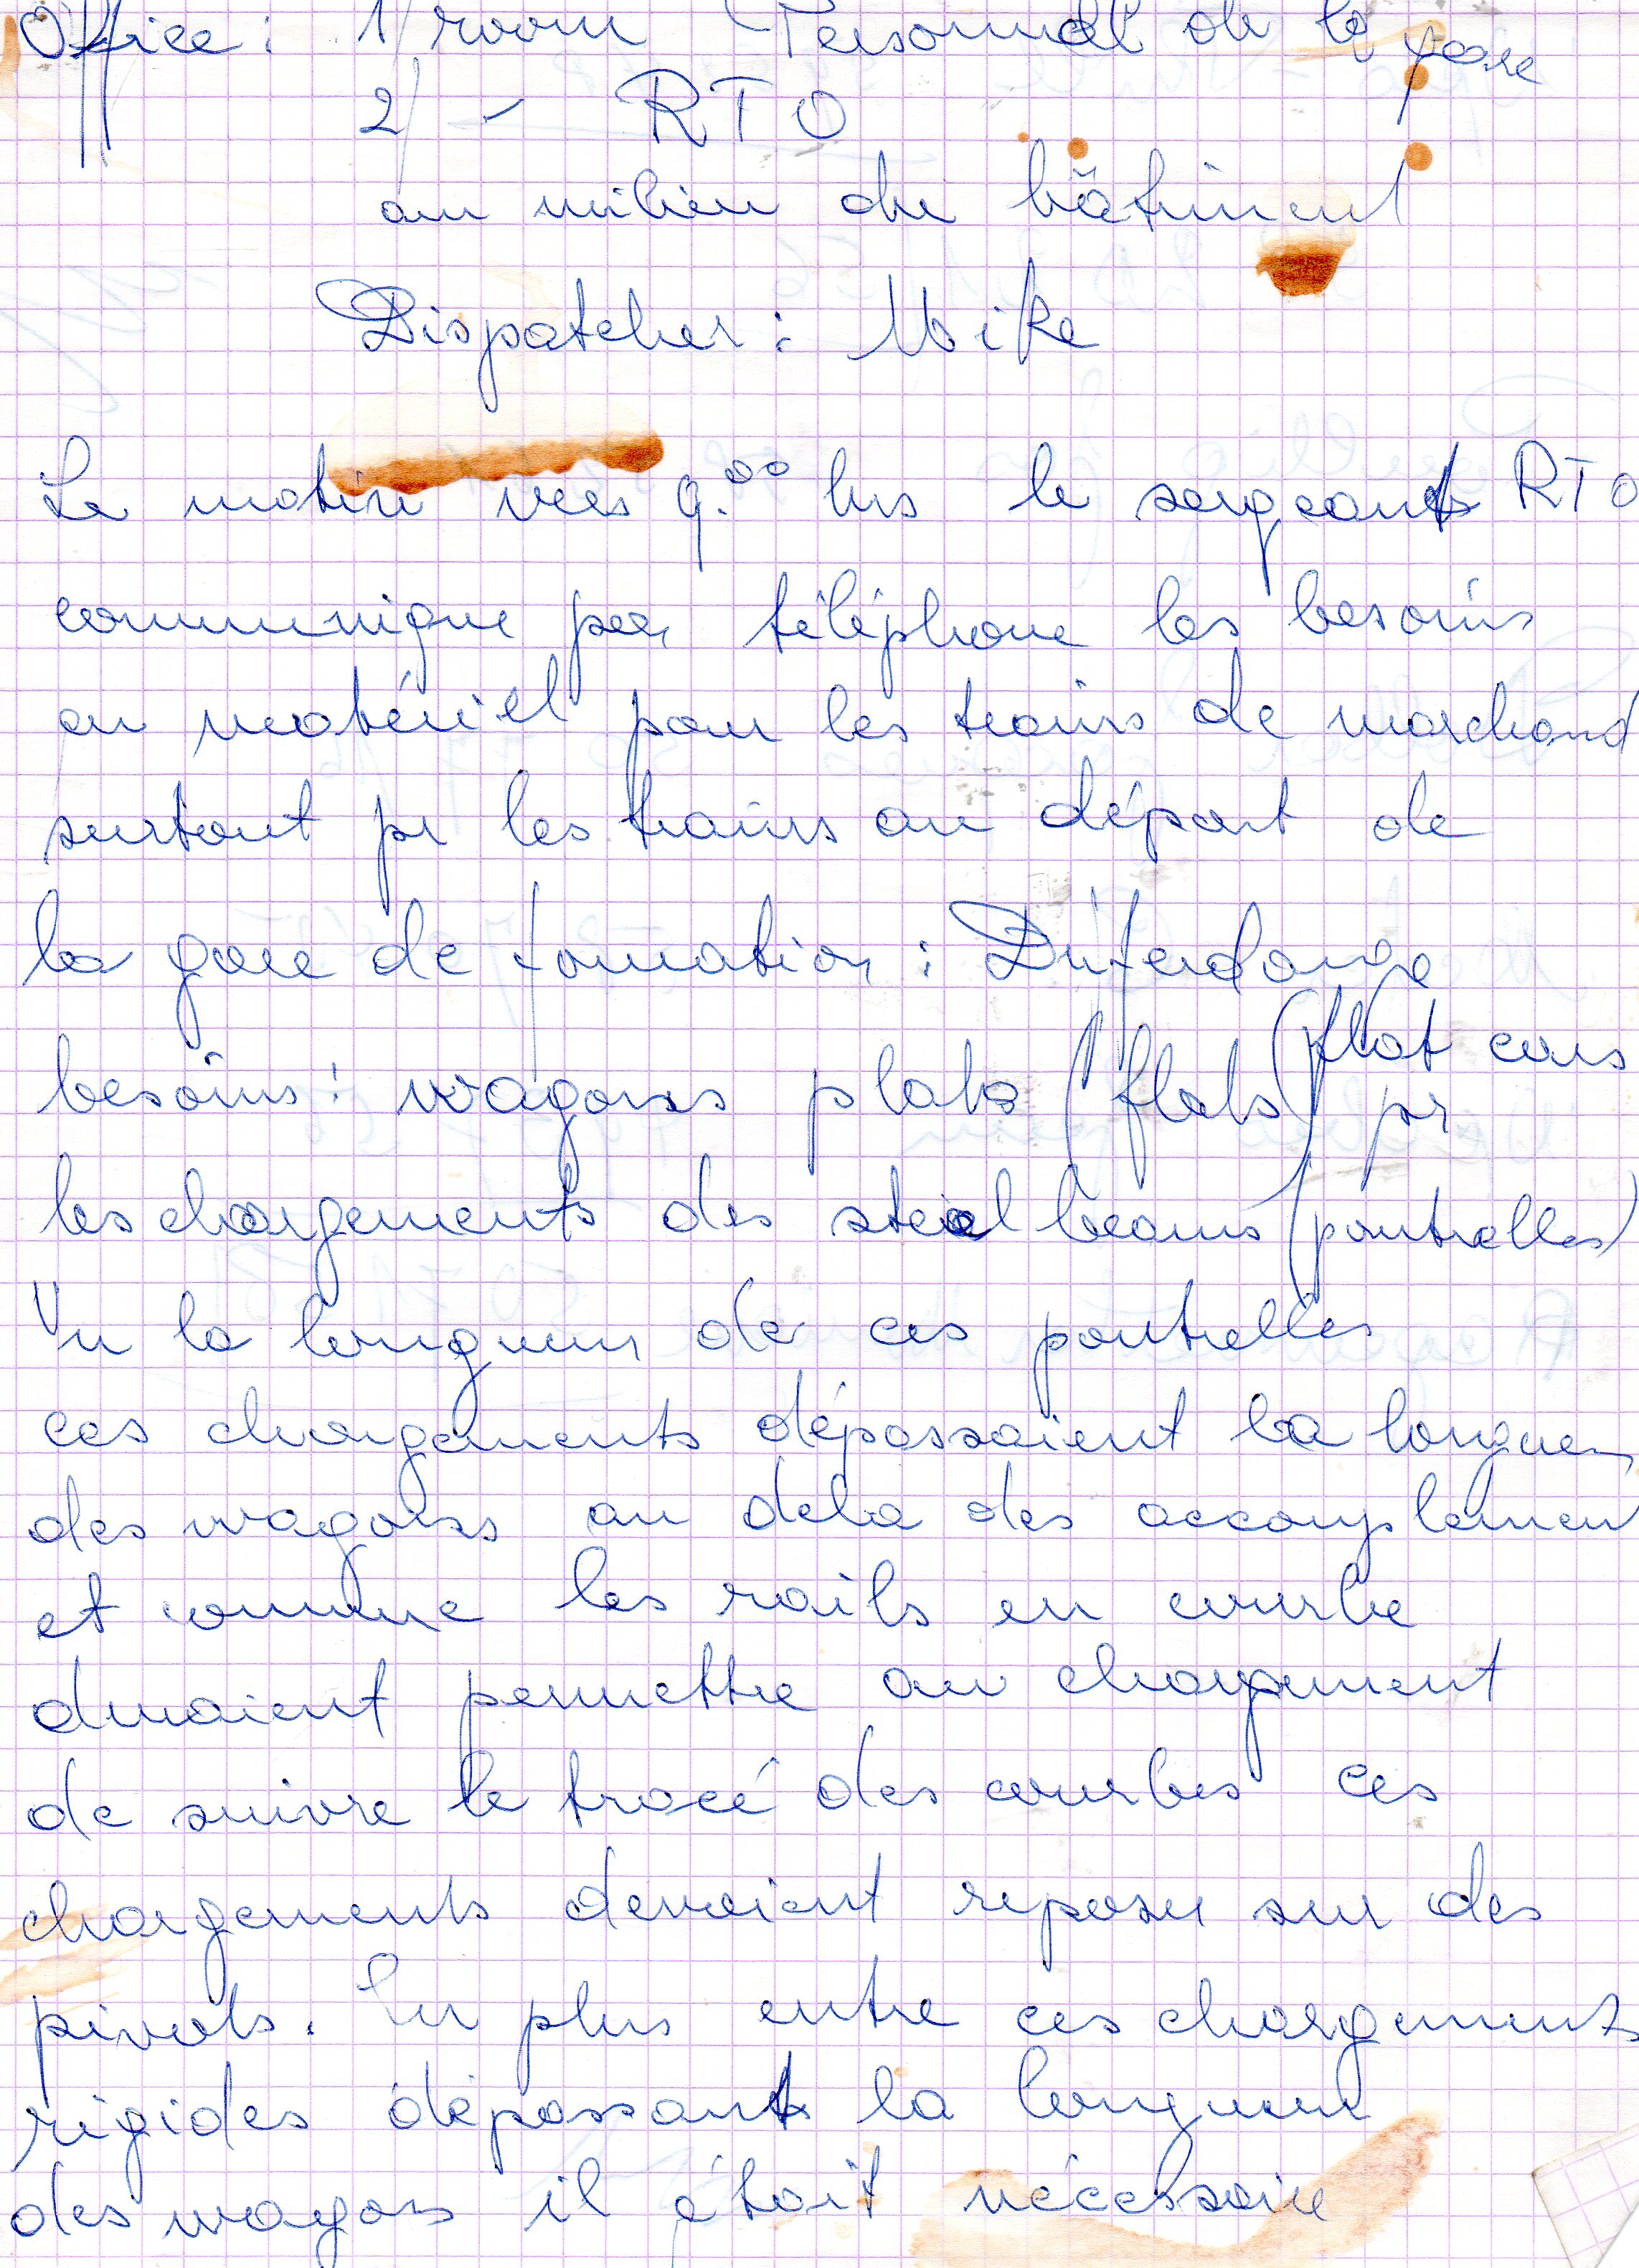 Office : 1/ room Personnel de la gare
2/ - RTO
au milieu du bâtiment
Dispatcher : Mike
Le matin vers 9.00 hrs le sergeant RTO
communique par téléphone les besoins
en matériel pour les trains de marchand
surtout pr les trains au départ de
la gare de formation : Differdange
(flat cars
besoins : wagons plats (flats) pr
les chargements des steel beams (poutrelles)
Vu la longueur de ces poutrelles
ces chargements dépassaient la longueur
des wagons au delà des accouplement
et comme les rails en courbe
devaient permettre au chargement
de suivre le tracé des courbes ces
chargements devaient reposer sur des
pivots. En plus entre ces chargements
rigides dépassant la longueur
des wagons il était nécessaire